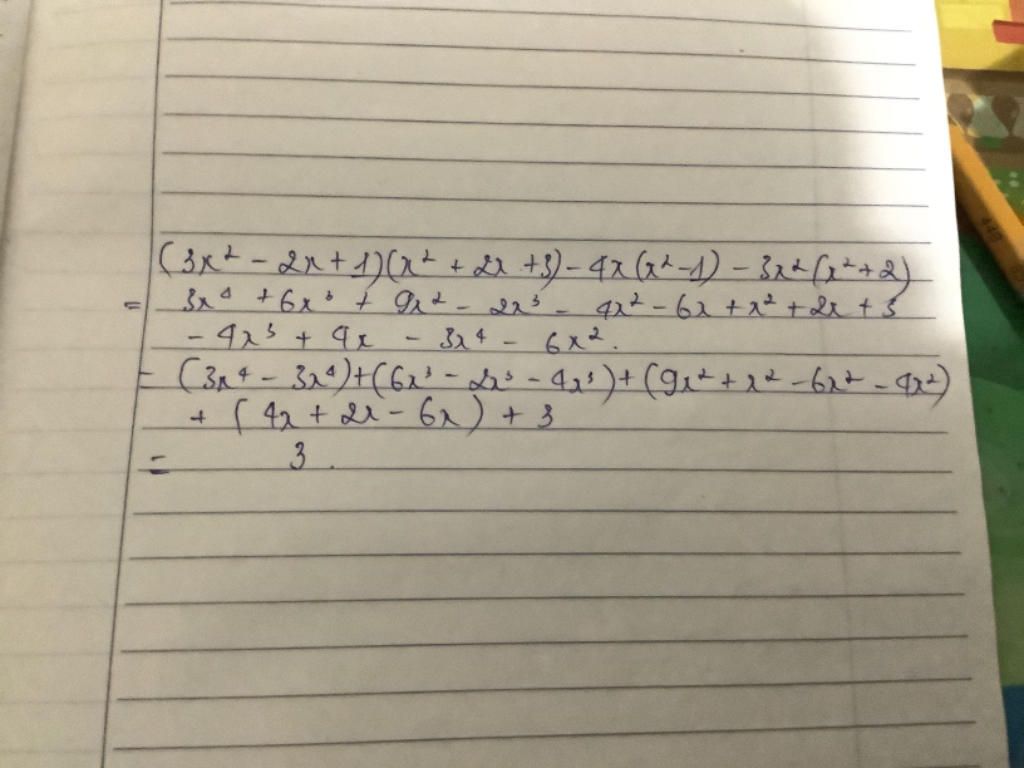 (3x² - 2x + 1)(x² + 2x + 3) - 4x(x² - 1) - 3x²(x² + 2)
= 3x⁴ + 6x³ + 9x² - 2x³ - 4x² - 6x + x² + 2x + 3
- 4x³ + 4x - 3x⁴ - 6x².
= (3x⁴ - 3x⁴) + (6x³ - 2x³ - 4x³) + (9x² + x² - 6x² - 4x²)
+ (4x + 2x - 6x) + 3
= 3.